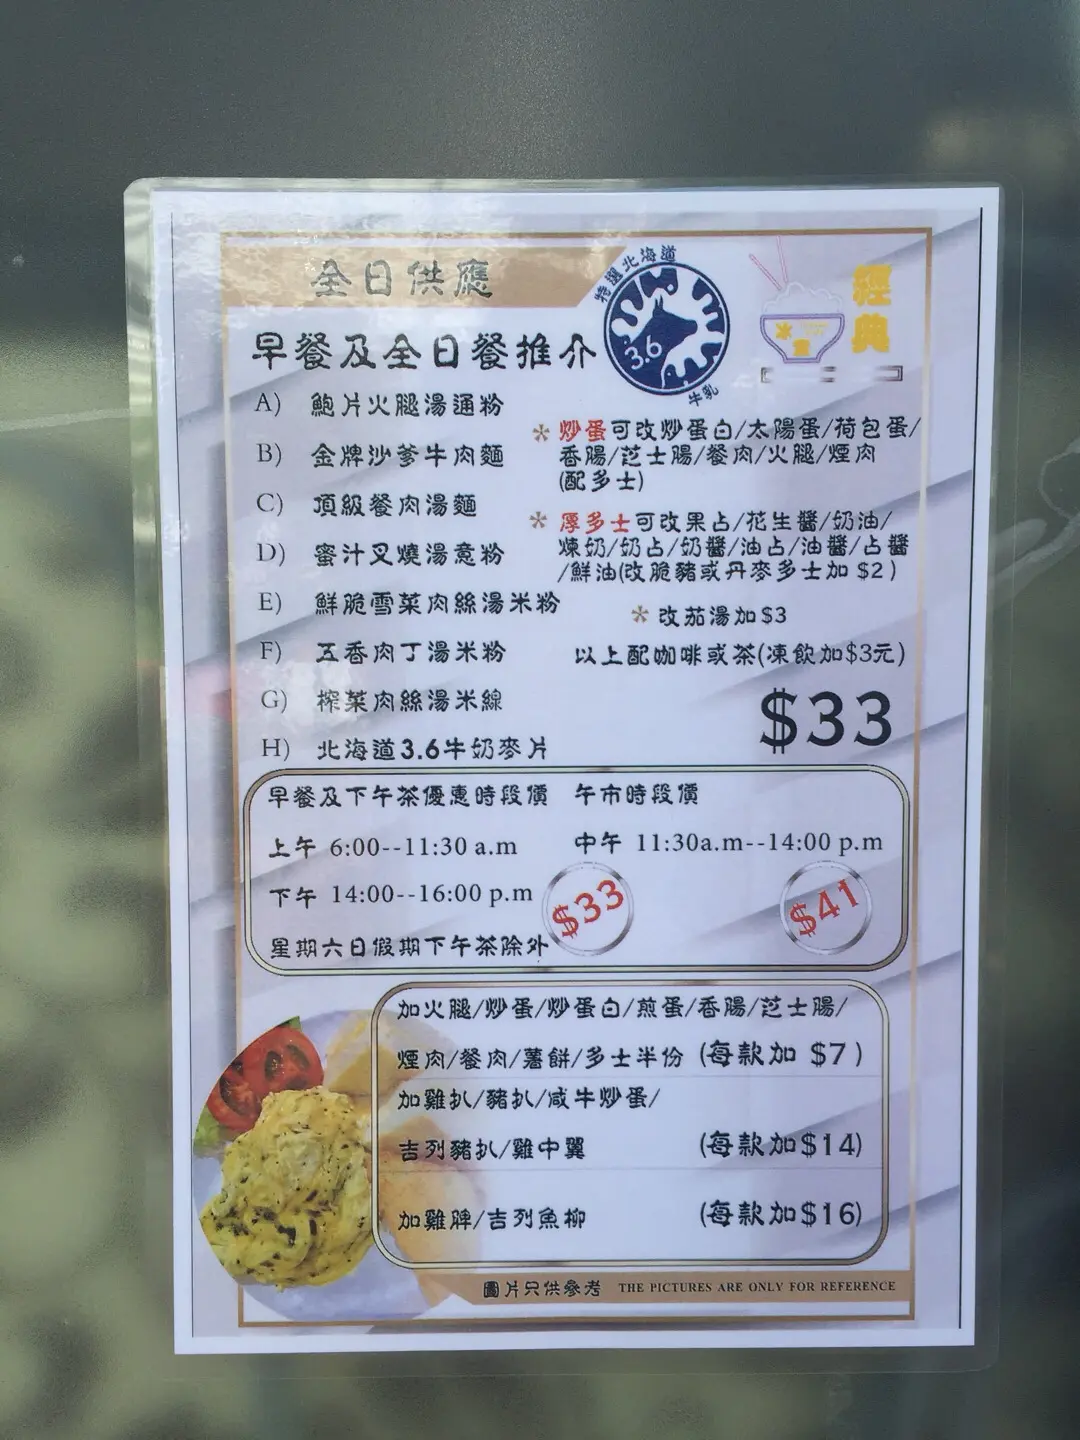 全日供應
特選北海道
3.6
牛乳
經典
冰室
早餐及全日餐推介
A) 鮑片火腿湯通粉
B) 金牌沙爹牛肉麵
C) 頂級餐肉湯麵
D) 蜜汁叉燒湯意粉
E) 鮮脆雪菜肉絲湯米粉
F) 五香肉丁湯米粉
G) 榨菜肉絲湯米線
H) 北海道3.6牛奶麥片
* 炒蛋可改炒蛋白/太陽蛋/荷包蛋/
香腸/芝士腸/餐肉/火腿/煙肉
(配多士)
* 厚多士可改果占/花生醬/奶油/
煉奶/奶占/奶醬/油占/油醬/占醬
/鮮油(改脆豬或丹麥多士加 $2)
* 改茄湯加$3
以上配咖啡或茶(凍飲加$3元)
$33
早餐及下午茶優惠時段價
上午 6:00--11:30 a.m
下午 14:00--16:00 p.m
$33
星期六日假期下午茶除外
午市時段價
中午 11:30a.m--14:00 p.m
$41
加火腿/炒蛋/炒蛋白/煎蛋/香腸/芝士腸/
煙肉/餐肉/薯餅/多士半份 (每款加 $7)
加雞扒/豬扒/咸牛炒蛋/
吉列豬扒/雞中翼 (每款加$14)
加雞脾/吉列魚柳 (每款加$16)
圖片只供參考 THE PICTURES ARE ONLY FOR REFERENCE